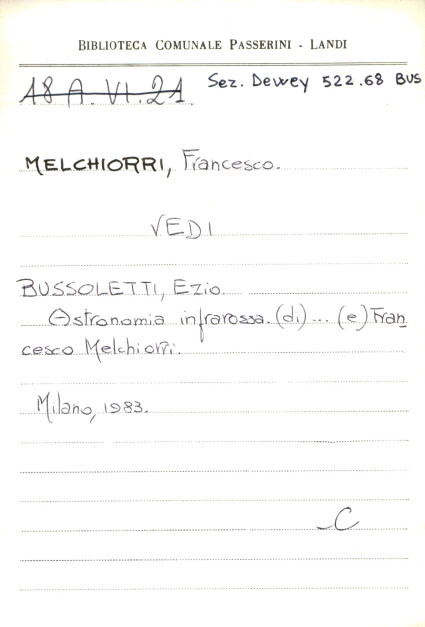 BIBLIOTECA COMUNALE PASSERINI - LANDI
18 A. VI. 21. Sez. Dewey 522.68 BUS
MELCHIORRI, Francesco.
VEDI
BUSSOLETTI, Ezio.
Astronomia infrarossa. (di) ... (e) Fran
cesco Melchiorri.
Milano, 1983.
C